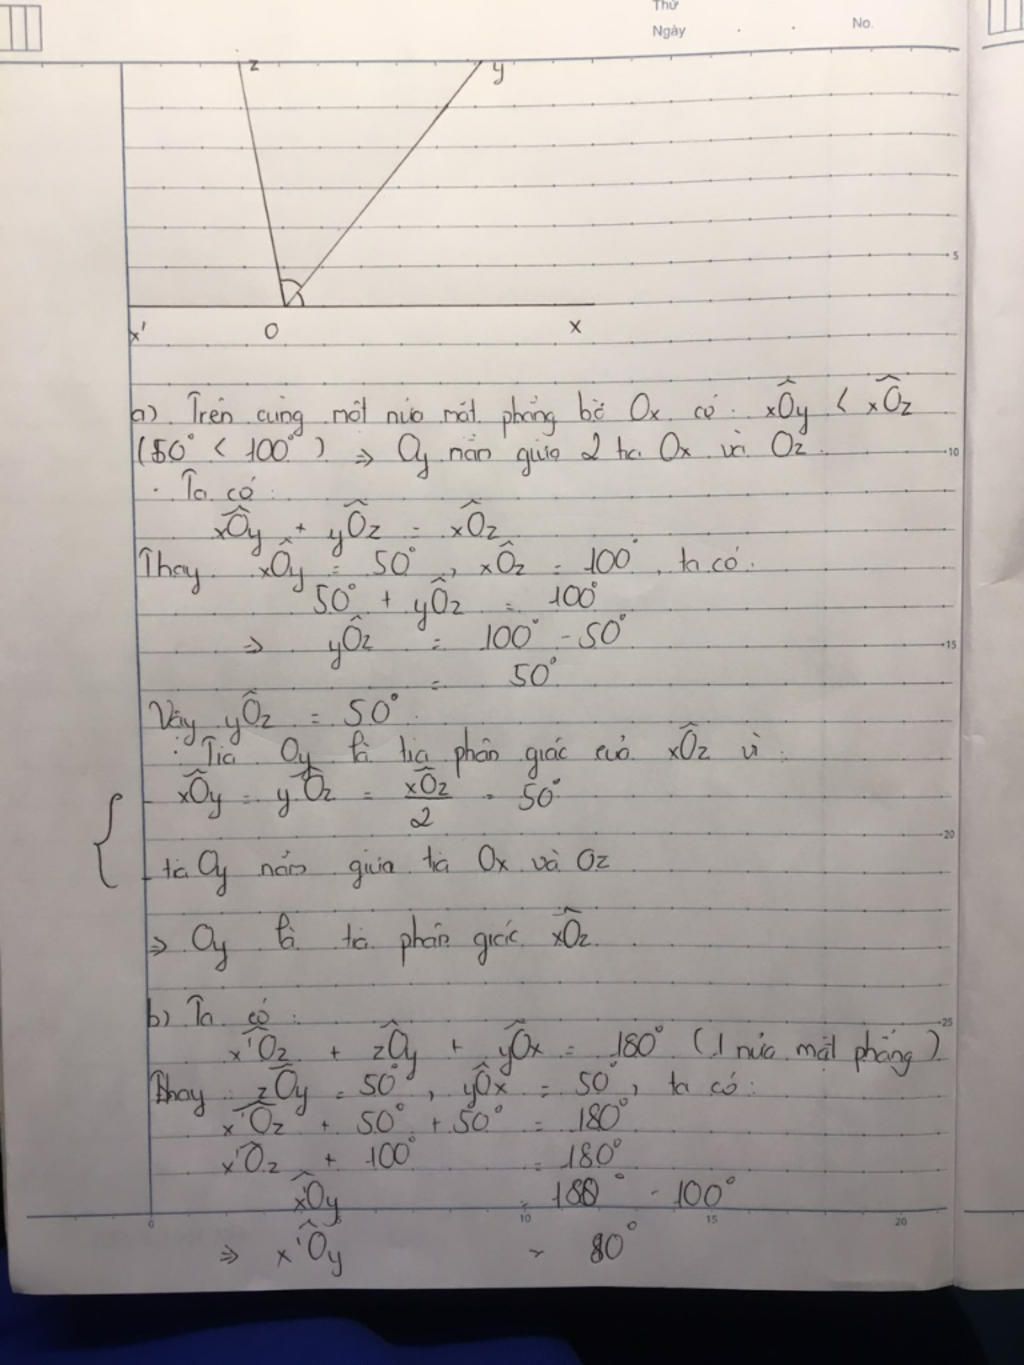 Thứ
Ngày . . No.
z y
x' O x
5
a) Trên cùng một nửa mặt phẳng bờ Ox có: xÔy < xÔz
(50° < 100°) ⇒ Oy nằm giữa 2 tia Ox và Oz.
10
. Ta có:
xÔy + yÔz = xÔz
Thay xÔy = 50°, xÔz = 100°, ta có:
50° + yÔz = 100°
⇒ yÔz = 100° - 50°
15
= 50°
Vậy yÔz = 50°.
: Tia Oy là tia phân giác của xÔz vì:
xÔy = yÔz = xÔz/2 = 50°
20
tia Oy nằm giữa tia Ox và Oz
⇒ Oy là tia phân giác xÔz.
b) Ta có:
25
x'Ôz + zÔy + yÔx = 180° (1 nửa mặt phẳng)
Thay: zÔy = 50°, yÔx = 50°, ta có:
x'Ôz + 50° + 50° = 180°
x'Ôz + 100° = 180°
x'Ôy = 180° - 100°
0 5 10 15 20
⇒ x'Ôy = 80°